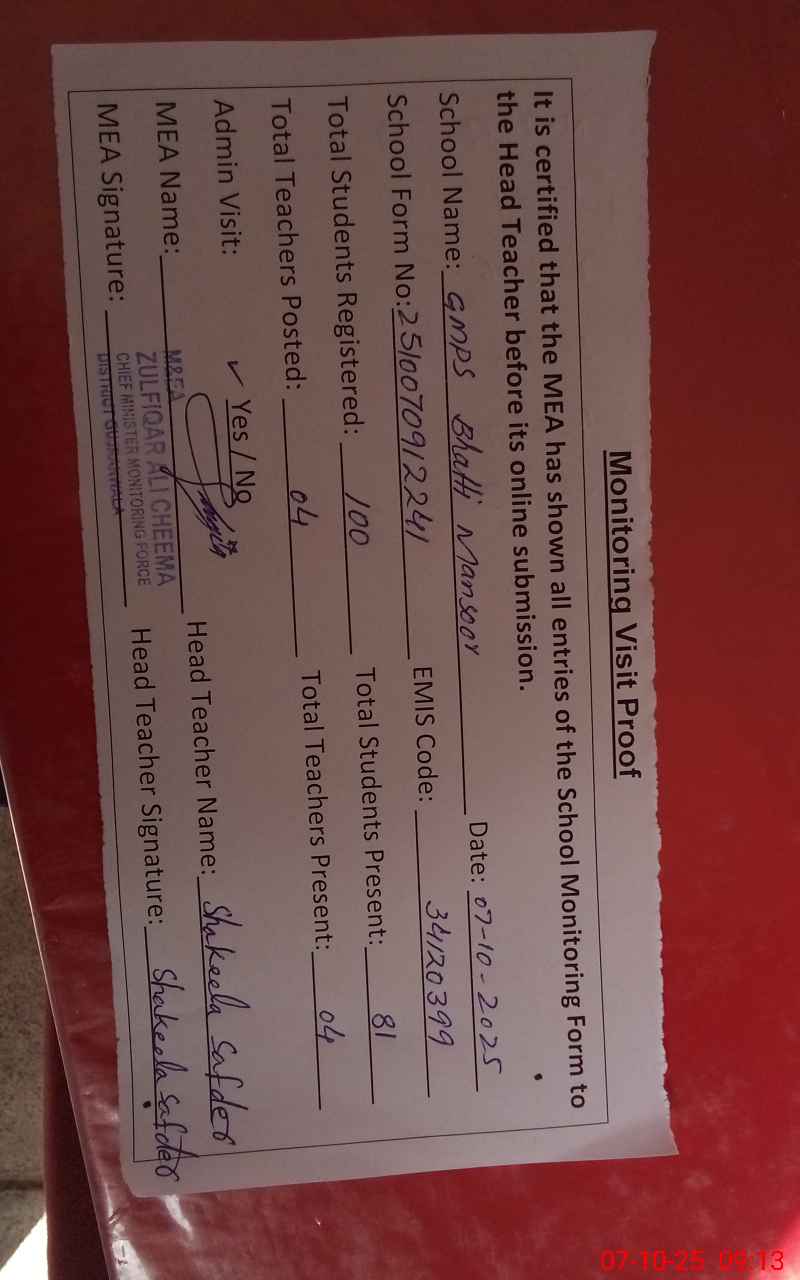 Monitoring Visit Proof
It is certified that the MEA has shown all entries of the School Monitoring Form to
the Head Teacher before its online submission.
School Name: GMPS Bhatti Mansoor Date: 07-10-2025
School Form No: 2510070912241 EMIS Code: 34120399
Total Students Registered: 100 Total Students Present: 81
Total Teachers Posted: 04 Total Teachers Present: 04
Admin Visit: ✓ Yes / No
MEA Name: M&EA Head Teacher Name: Shakeela Safder
ZULFIQAR ALI CHEEMA
MEA Signature: CHIEF MINISTER MONITORING FORCE Head Teacher Signature: Shakeela Safder
DISTRICT GUJRANWALA
07-10-25 09:13